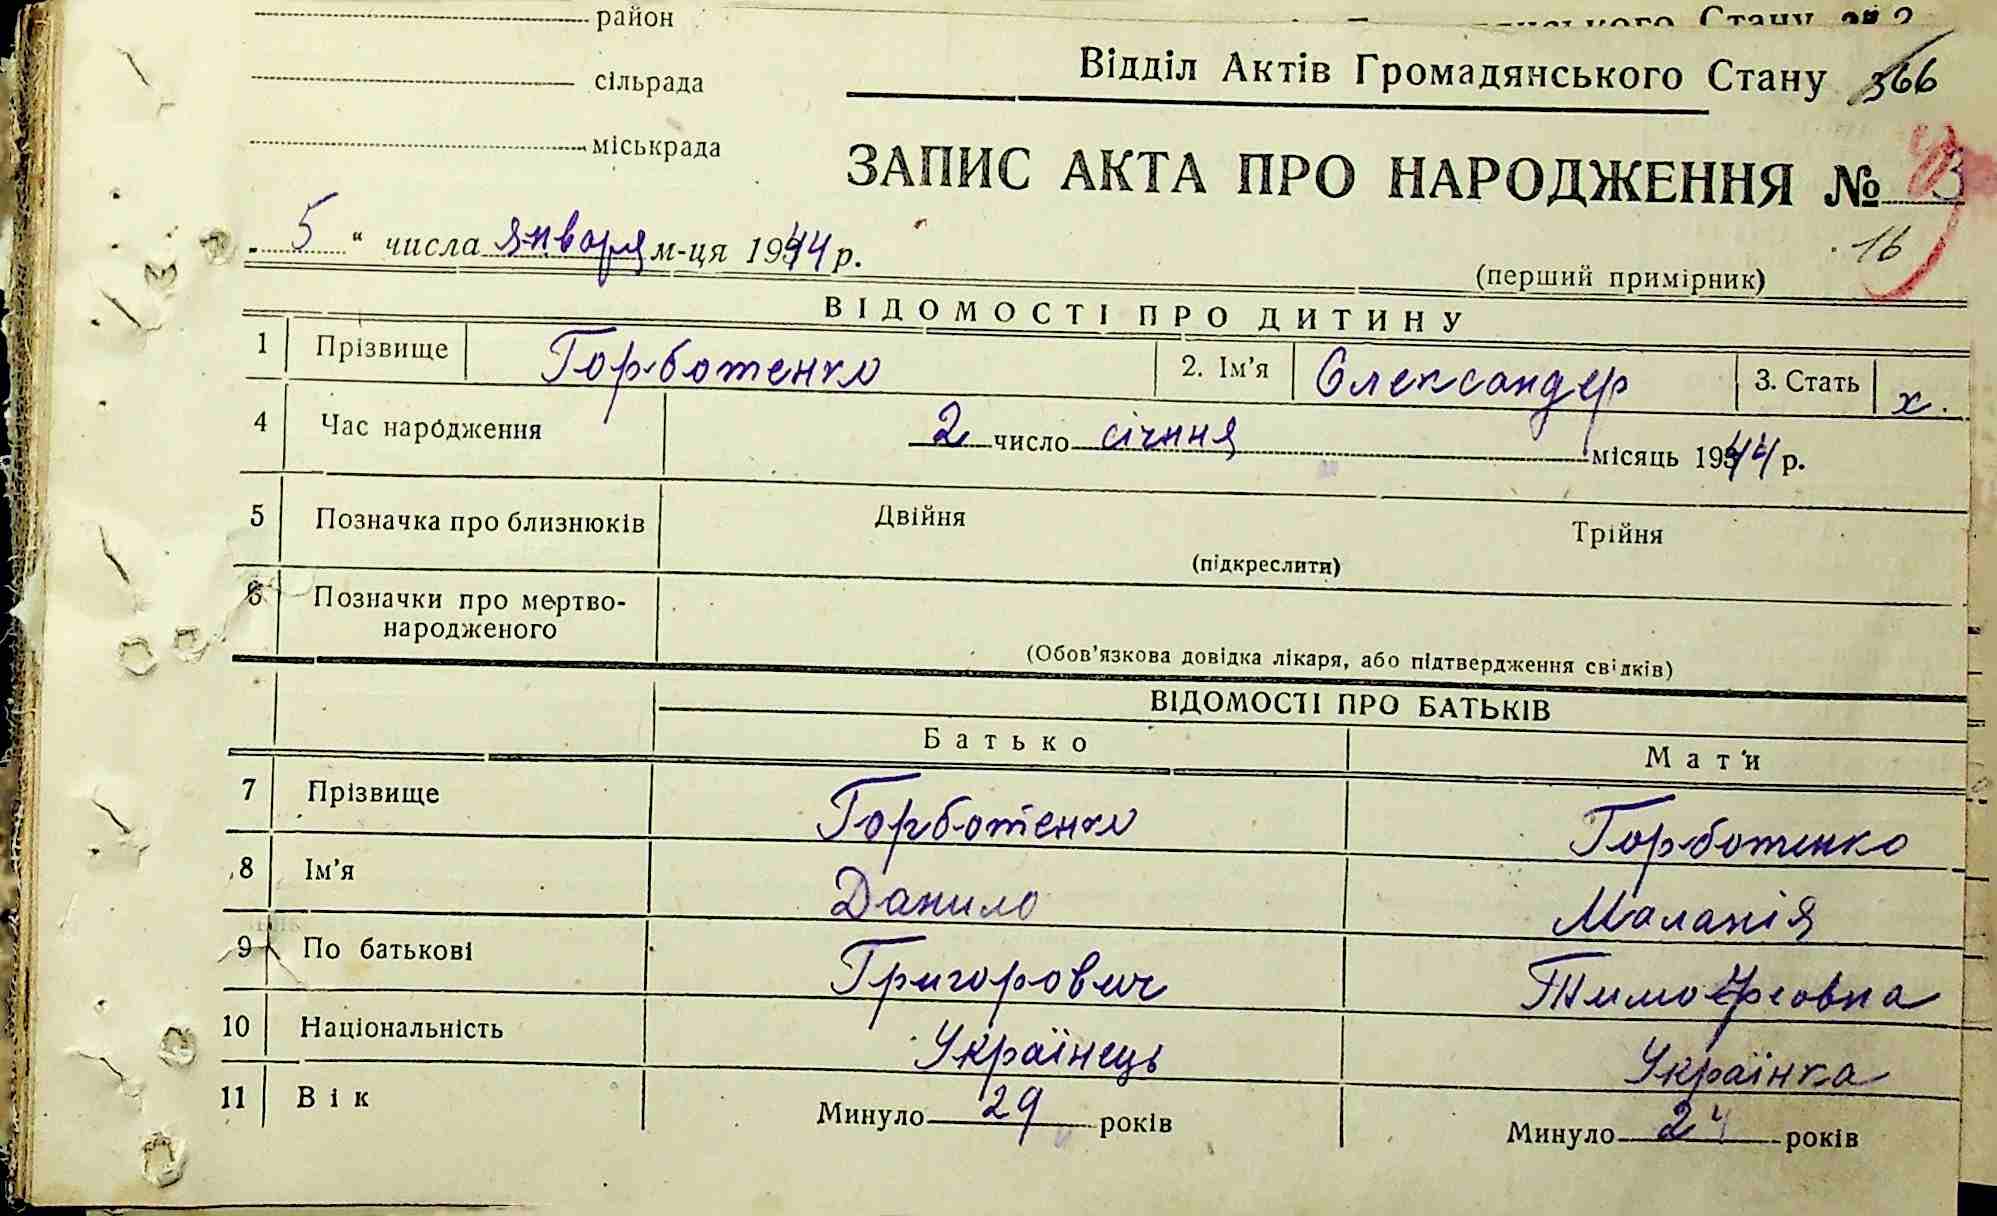 район
Відділ Актів Громадянського Стану 366
сільрада
міськрада
ЗАПИС АКТА ПРО НАРОДЖЕННЯ № 3
„5“ числа января м-ця 1944 р.
16
(перший примірник)
ВІДОМОСТІ ПРО ДИТИНУ
1 Прізвище Горботенко 2. Ім'я Олександер 3. Стать х.
4 Час народження 2 число січня місяць 1944 р.
5 Позначка про близнюків Двійня Трійня
(підкреслити)
6 Позначки про мертво-
народженого
(Обов'язкова довідка лікаря, або підтвердження свідків)
ВІДОМОСТІ ПРО БАТЬКІВ
Батько Мати
7 Прізвище Горботенко Горботенко
8 Ім'я Данило Маланія
9 По батькові Григорович Тимофеовна
10 Національність Українець Українка
11 Вік Минуло 29 років Минуло 24 років